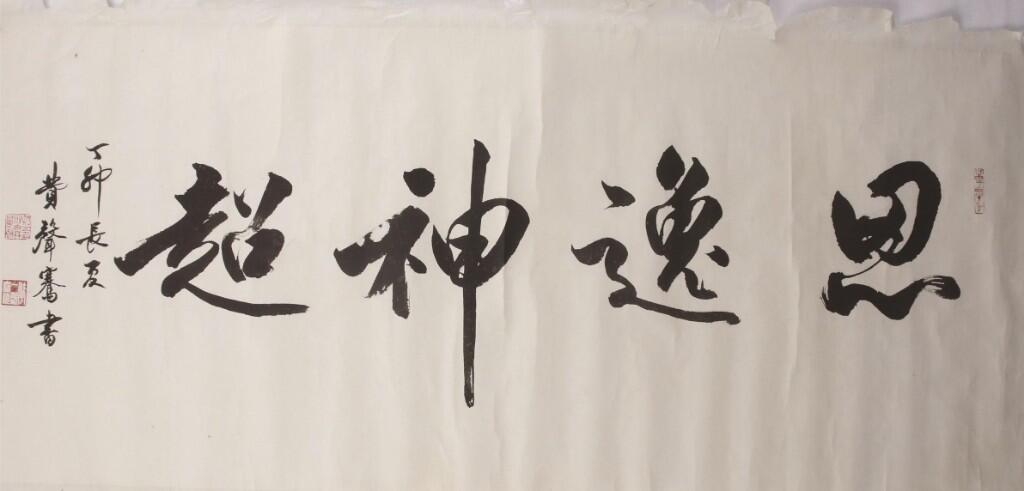 思逸神超
丁卯長夏
費聲騫書